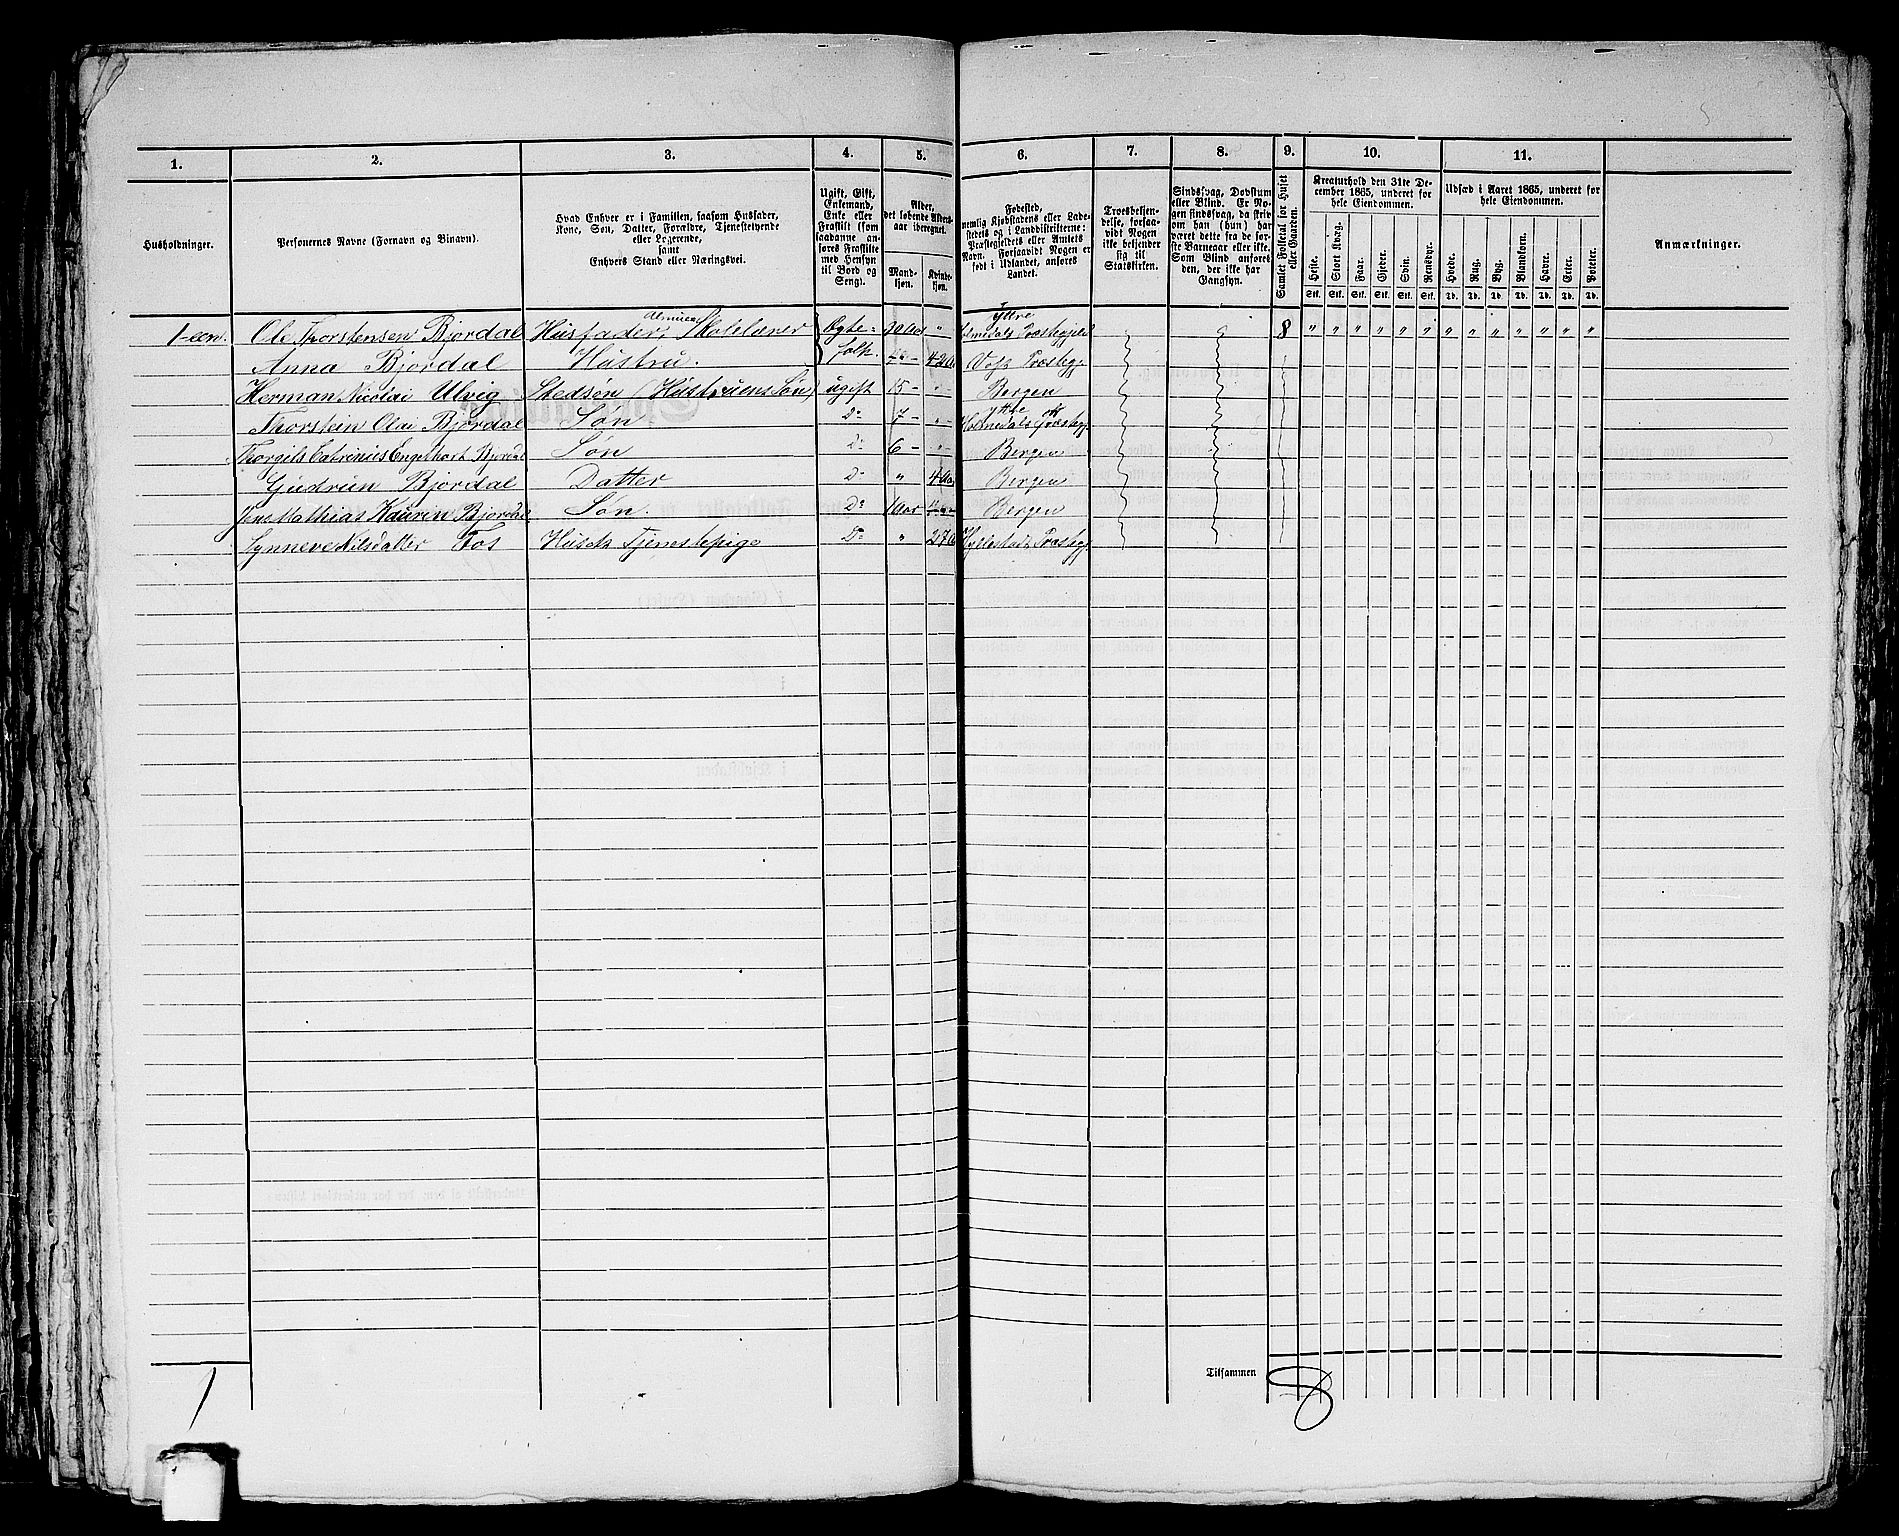 1. 2. 3. 4. 5. 6. 7. 8. 9. 10. 11.
Husholdninger.
Personernes Navne (Fornavn og Binavn).
Hvad Enhver er i Familien, saasom Husfader,
Kone, Søn, Datter, Forældre, Tjenestetyende
eller Logerende,
samt
Enhvers Stand eller Næringsvei.
Ugift, Gift,
Enkemand,
Enke eller
Fraskilt (som
saadanne an-
føres Fraskilte
med Hensyn
til Bord og
Seng).
Alder,
det løbende Alders-
aar iberegnet.
Mand-
kjøn.
Kvinde-
kjøn.
Fødested,
nemlig Kjøbstadens eller Lade-
stedets og i Landdistrikterne:
Præstegjeldets eller Amtets
Navn. Forsaavidt Nogen er
født i Udlandet, anføres
Landet.
Troesbekjen-
delse, forsaa-
vidt Nogen
ikke bekjender
sig til
Statskirken.
Sindssvag, Døvstum
eller Blind. Er No-
gen sindssvag, da skriv
om han (hun) har
været dette fra de før-
ste Barneaar eller ikke.
Som Blind anføres
den, der ikke har
Gangsyn.
Samlet Folketal for Huset
eller Gaarden.
Kreaturhold den 31te De-
cember 1865, underet for
hele Eiendommen.
Heste. Stort Kvæg. Faar. Gjeder. Svin. Rensdyr.
Stk. Stk. Stk. Stk. Stk. Stk.
Udsæd i Aaret 1865, underet for
hele Eiendommen.
Hvede. Rug. Byg. Blandkorn. Havre. Erter. Poteter.
Td. Td. Td. Td. Td. Td. Td.
Anmærkninger.
1-een. Ole Thorstensen Bjordal Husfader, Almue Skolelærer Ægte= Aar " Ytre Holmedals Præstegjeld 8 " " " " " " " " " " " " "
Anna Bjordal Hustru. folk. 42 Aar Præstegj.
Herman Nicolai Ulvig Stedsøn (Hustruens Søn) ugift 15 - " - Bergen
Thorstein Olai Bjordal Søn Do 7 - " - Ytre Holmedals Præstegj.
Thorgils Catrinius Engelhart Bjordal Søn Do 6 - " - Bergen
Gudrun Bjordal Datter Do " 4 Aar Bergen
Jens Mathias Kaurin Bjordal Søn. Do 1 Aar Bergen
Synneve Nilsdatter Fos Tjenestepige Do " 27 Aar Hyllestad Præstegj.
Tilsammen 8
1